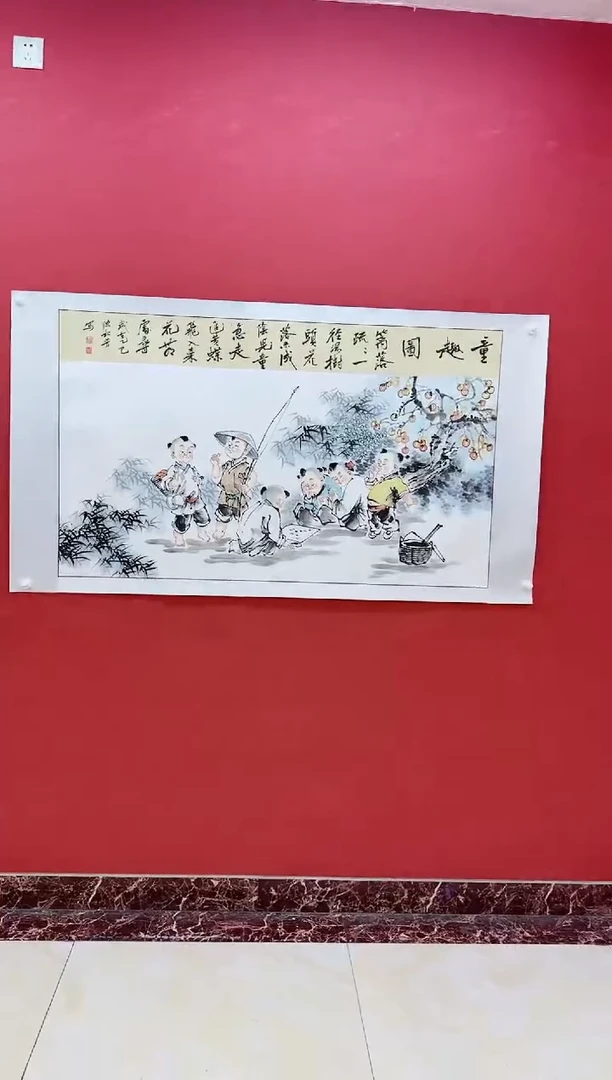 童趣圖
籬落
疏々一
徑深樹
頭花
落未成
陰兒童
急走
追黃蝶
飛入菜
花無
處尋
写